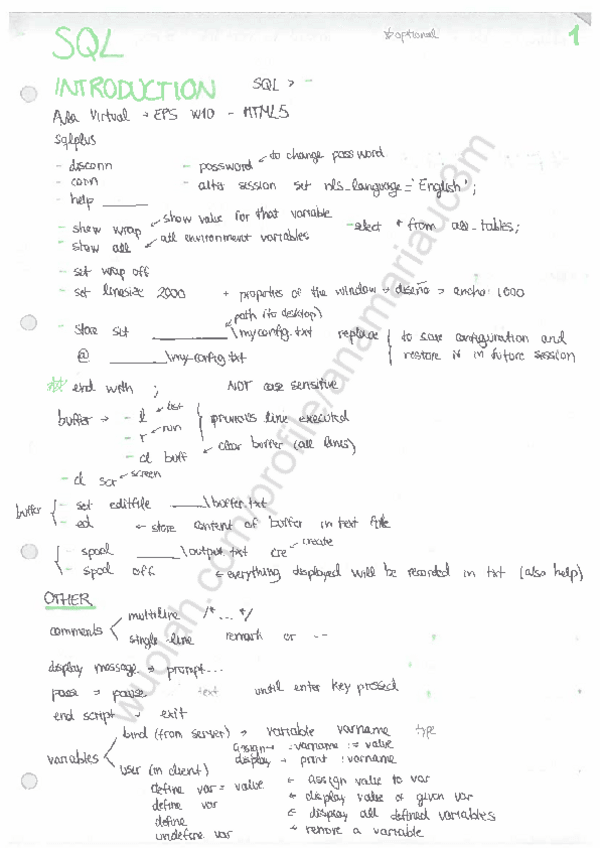 * optional
1
SQL
INTRODUCTION SQL > -
Aula Virtual → EPS W10 - HTML5
sqlplus
- disconn - password ← to change password
- conn - alter session set nls_language='English';
- help ____
- show wrap ← show value for that variable - select * from all_tables;
- show all ← all environment variables
- set wrap off
- set linesize 2000 + properties of the window → diseño > ancho: 1000
path (to desktop)
- store set ____\myconfig.txt replace { to save configuration and
@ ____\my-config.txt restore it in future session
** end with ; NOT case sensitive
buffer → - l ← list } previous line executed
- r ← run
- cl buff ← clear buffer (all lines)
- cl scr ← screen
buffer { - set editfile ____\buffer.txt
- ed ← store content of buffer in text file
{ - spool ____\output.txt cre ← create
- spool off ← everything displayed will be recorded in txt (also help)
OTHER
comments < multiline /* ... */
single line remark or --
display message → prompt...
pause → pause text until enter key pressed
end script → exit
variables < bind (from server) → variable varname type
assign → :varname := value
display → print :varname
user (in client)
define var = value ← assign value to var
define var ← display value of given var
define ← display all defined variables
undefine var ← remove a variable
wuolah.com/profile/anamariauc3m